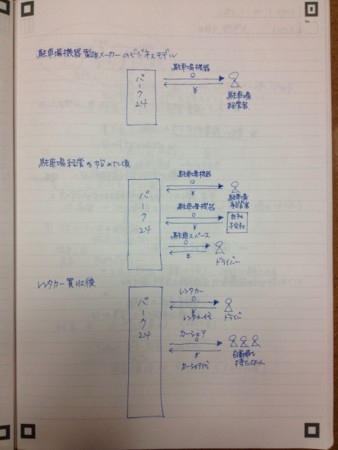 駐車場機器製造メーカーのビジネスモデル
パーク24
駐車場機器
¥
駐車場
経営者
駐車場経営の始めた頃
パーク24
駐車場機器
¥
駐車場
経営者
駐車場機器
¥
自社
駐車スペース
¥
ドライバー
レンタカー買収後
パーク24
レンタカー
¥
レンタカー代
ドライバー
カーシェア
¥
カーシェア代
自動車を